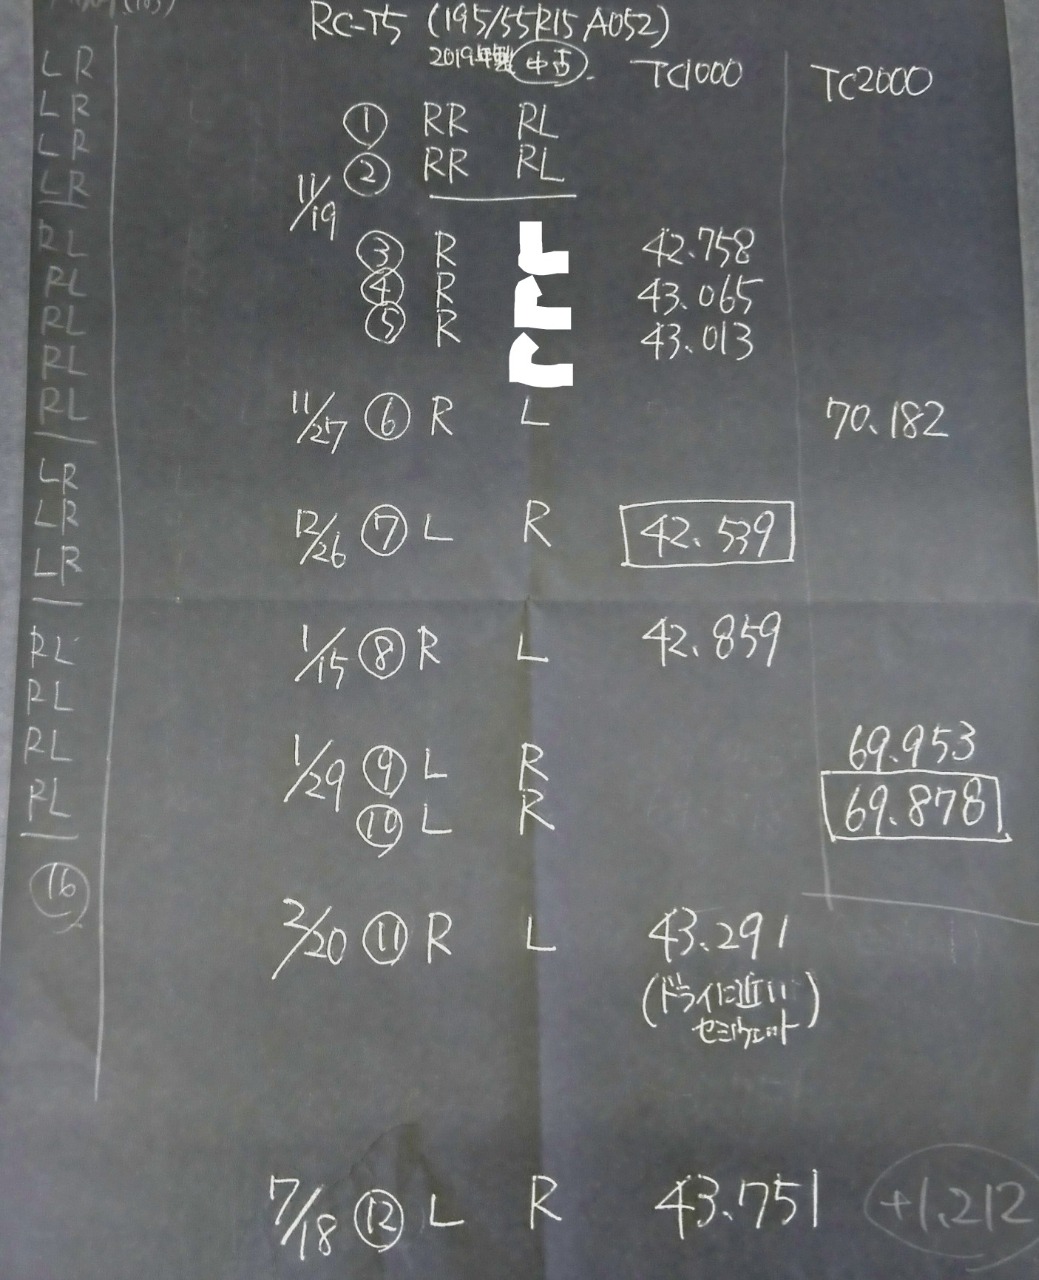 RC-T5 (195/55R15 A052)
2019年製 中古. TC1000 TC2000
① RR RL
② RR RL
11/19
③ R L 42.758
④ R L 43.065
⑤ R L 43.013
11/27 ⑥ R L 70.182
12/26 ⑦ L R 42.539
1/15 ⑧ R L 42.859
1/29 ⑨ L R 69.953
⑩ L R 69.878
2/20 ⑪ R L 43.291
(ドライに近い
セミウェット)
7/18 ⑫ L R 43.751 +1.212
LR
LR
LR
LR
RL
RL
RL
RL
RL
LR
LR
LR
RL
RL
RL
RL
⑯